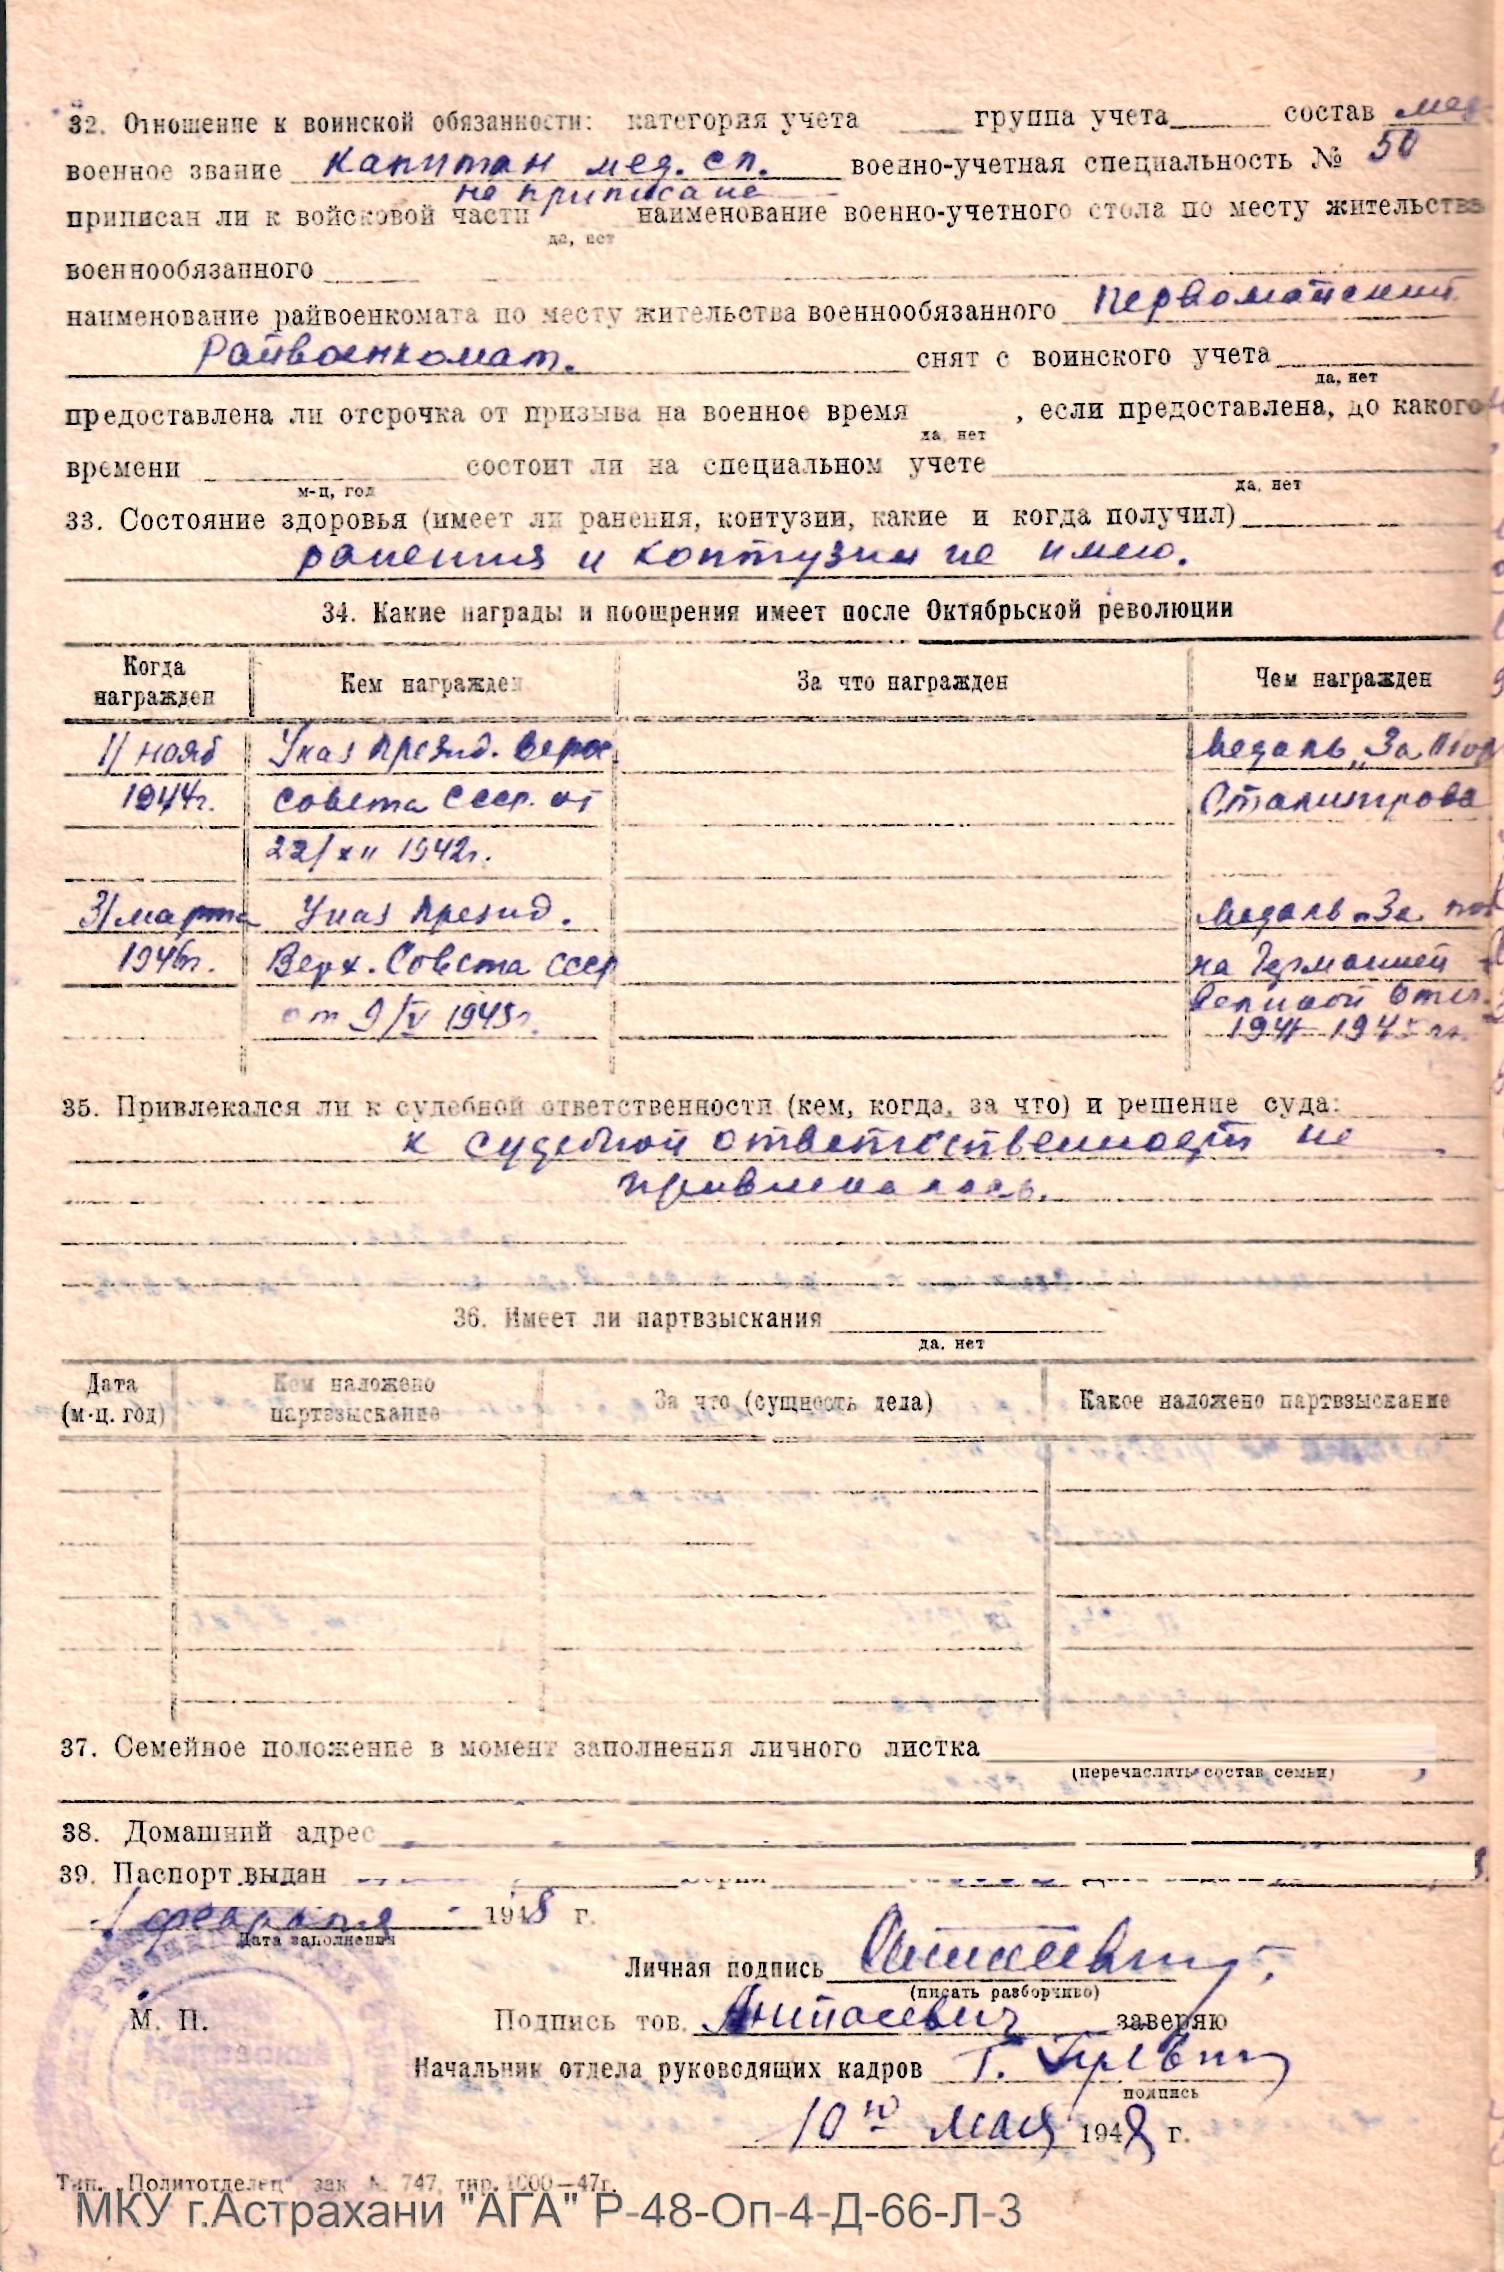 32. Отношение к воинской обязанности: категория учета ____ группа учета ____ состав мед.
военное звание капитан мед. сл. военно-учетная специальность № 50
не приписана
приписан ли к войсковой части наименование военно-учетного стола по месту жительства
да, нет
военнообязанного
наименование райвоенкомата по месту жительства военнообязанного Первомайский
Райвоенкомат. снят с воинского учета
да, нет
предоставлена ли отсрочка от призыва на военное время , если предоставлена, до какого
да, нет
времени состоит ли на специальном учете
м-ц, год да, нет
33. Состояние здоровья (имеет ли ранения, контузии, какие и когда получил)
ранения и контузии не имею.
34. Какие награды и поощрения имеет после Октябрьской революции
Когда награжден Кем награжден За что награжден Чем награжден
1/ нояб Указ Презид. Верх Медаль „За
1944г. Совета СССР. от Сталинграда
22/XII 1942г.
3/марта Указ Презид. Медаль „За
1946г. Верх. Совета СССР на Германией
от 9/V 1945г. Великой Отеч.
1941-1945 гг.
35. Привлекался ли к судебной ответственности (кем, когда, за что) и решение суда:
к судебной ответственности не
привлекалась.
36. Имеет ли партвзыскания
да, нет
Дата (м-ц. год) Кем наложено партвзыскание За что (сущность дела) Какое наложено партвзыскание
37. Семейное положение в момент заполнения личного листка
(перечислить состав семьи)
38. Домашний адрес
39. Паспорт выдан
1 февраля 1948 г.
Дата заполнения
Личная подпись
(писать разборчиво)
М. П. Подпись тов. Антасевич заверяю
Начальник отдела руководящих кадров Г. Гуревич
подпись
10го мая 1948 г.
Тип. „Политотделец" зак. № 747, тир. 1000—47г.
МКУ г.Астрахани "АГА" Р-48-Оп-4-Д-66-Л-3